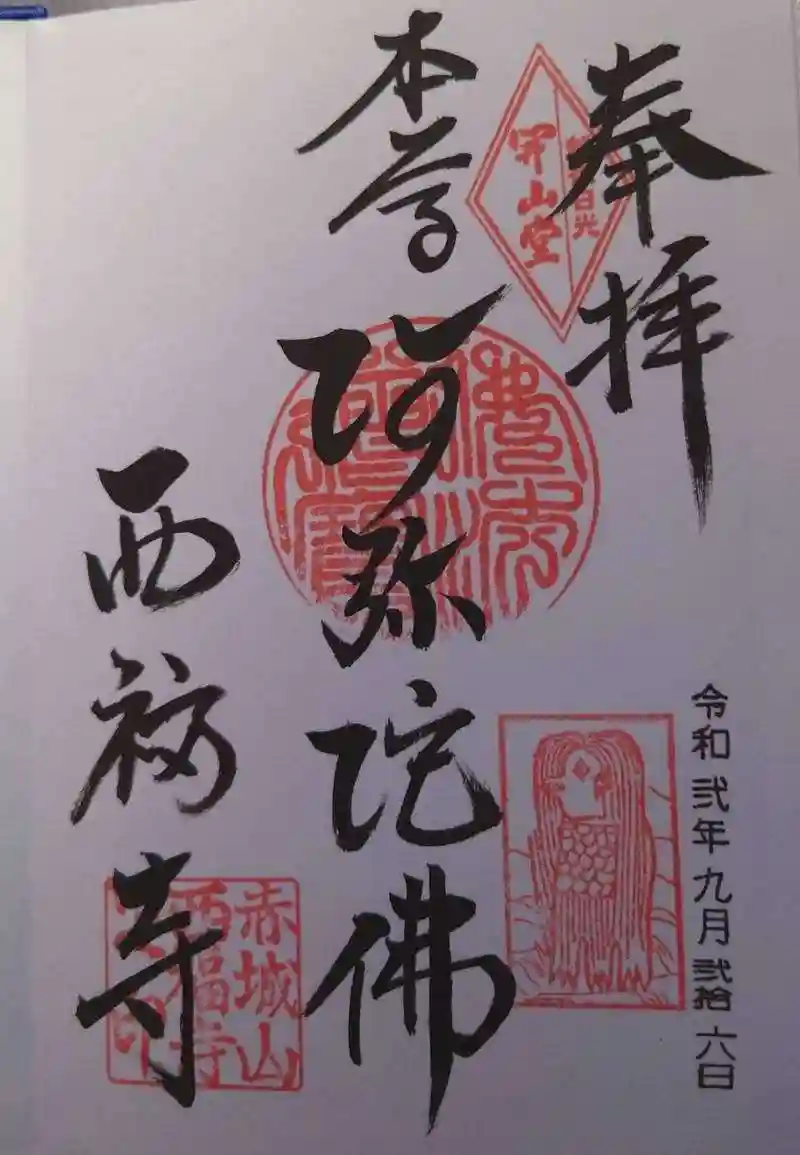 奉拝
令和弐年九月弐拾六日
開山堂
本尊
阿弥陀佛
西福寺
赤城山
西福寺